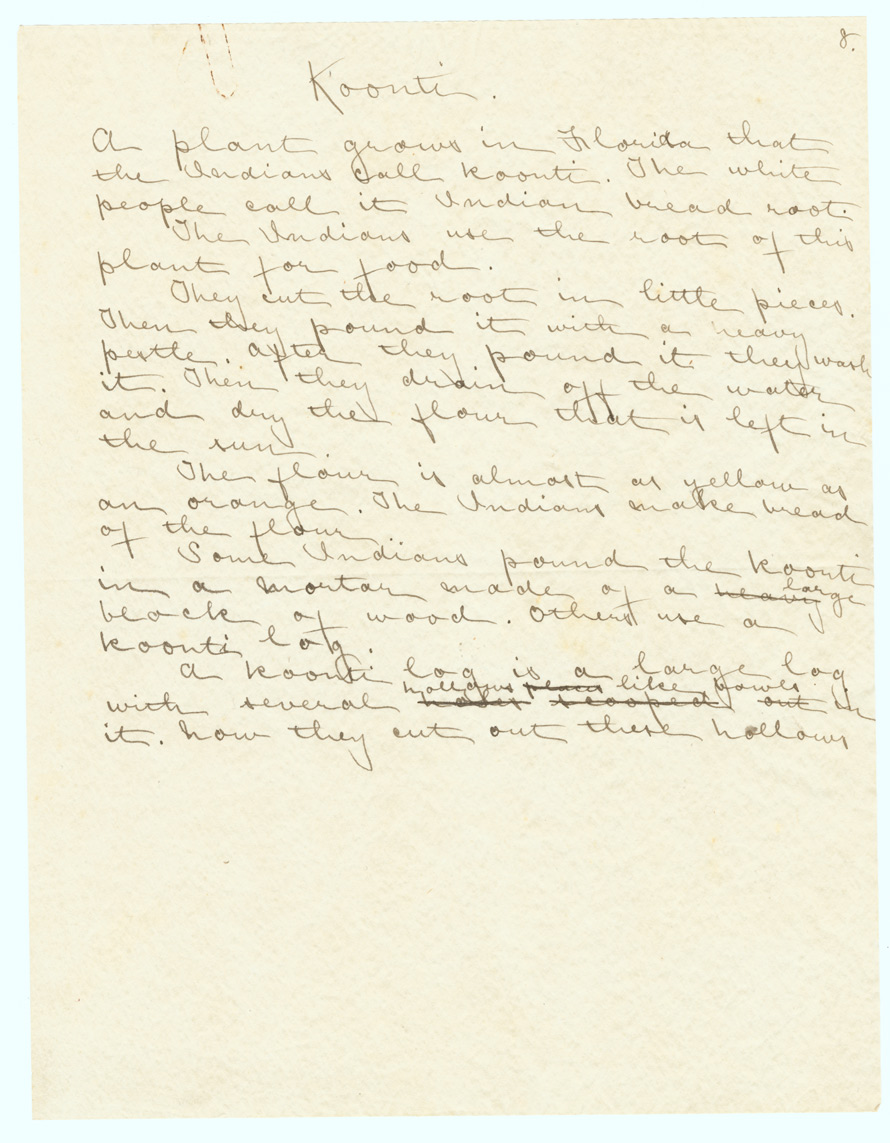 8.
Koonti.
A plant grows in Florida that
the Indians call koonti. The white
people call it Indian bread root.
The Indians use the root of this
plant for food.
They cut the root in little pieces.
Then they pound it with a heavy
pestle. After they pound it they wash
it. Then they drain off the water
and dry the flour that is left in
the sun.
The flour is almost as yellow as
an orange. The Indians make bread
of the flour.
Some Indians pound the koonti
in a mortar made of a heavy large
block of wood. Others use a
koonti log.
A koonti log is a large log
hollows like bowls
with several holes scooped out in
it. Now they cut out these hollows